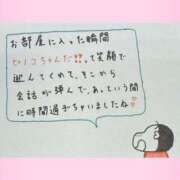 お部屋に入った瞬間
ヒノコちゃんだ!!って笑顔
で
喜んてくめて、そこから
会話が弾んで、あっという間
に時間過ぎちゃいましたね